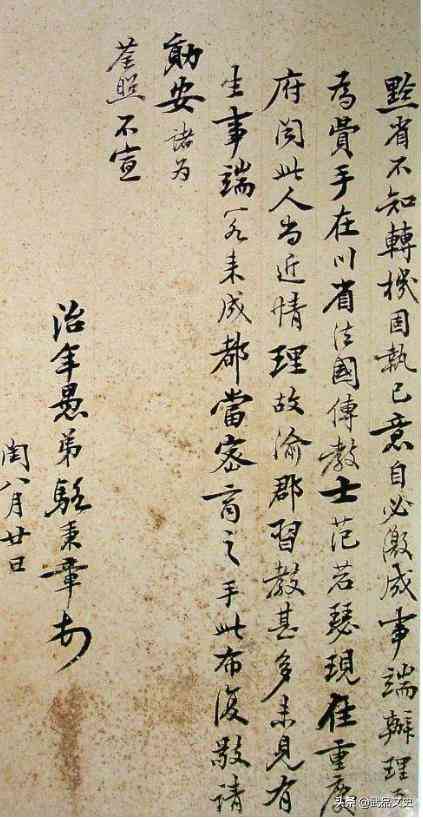 黔省不知轉機固執己意自必激成事端辦理
為費手在川省法國傳教士范若瑟現在重慶
府閱此人尚近情理故渝郡習教甚多未見有
生事端一来成都當密商之手此布復敬請
勛安諸为
荃照不宣
治年愚弟駱秉章
閏八月廿日
头条 @文史